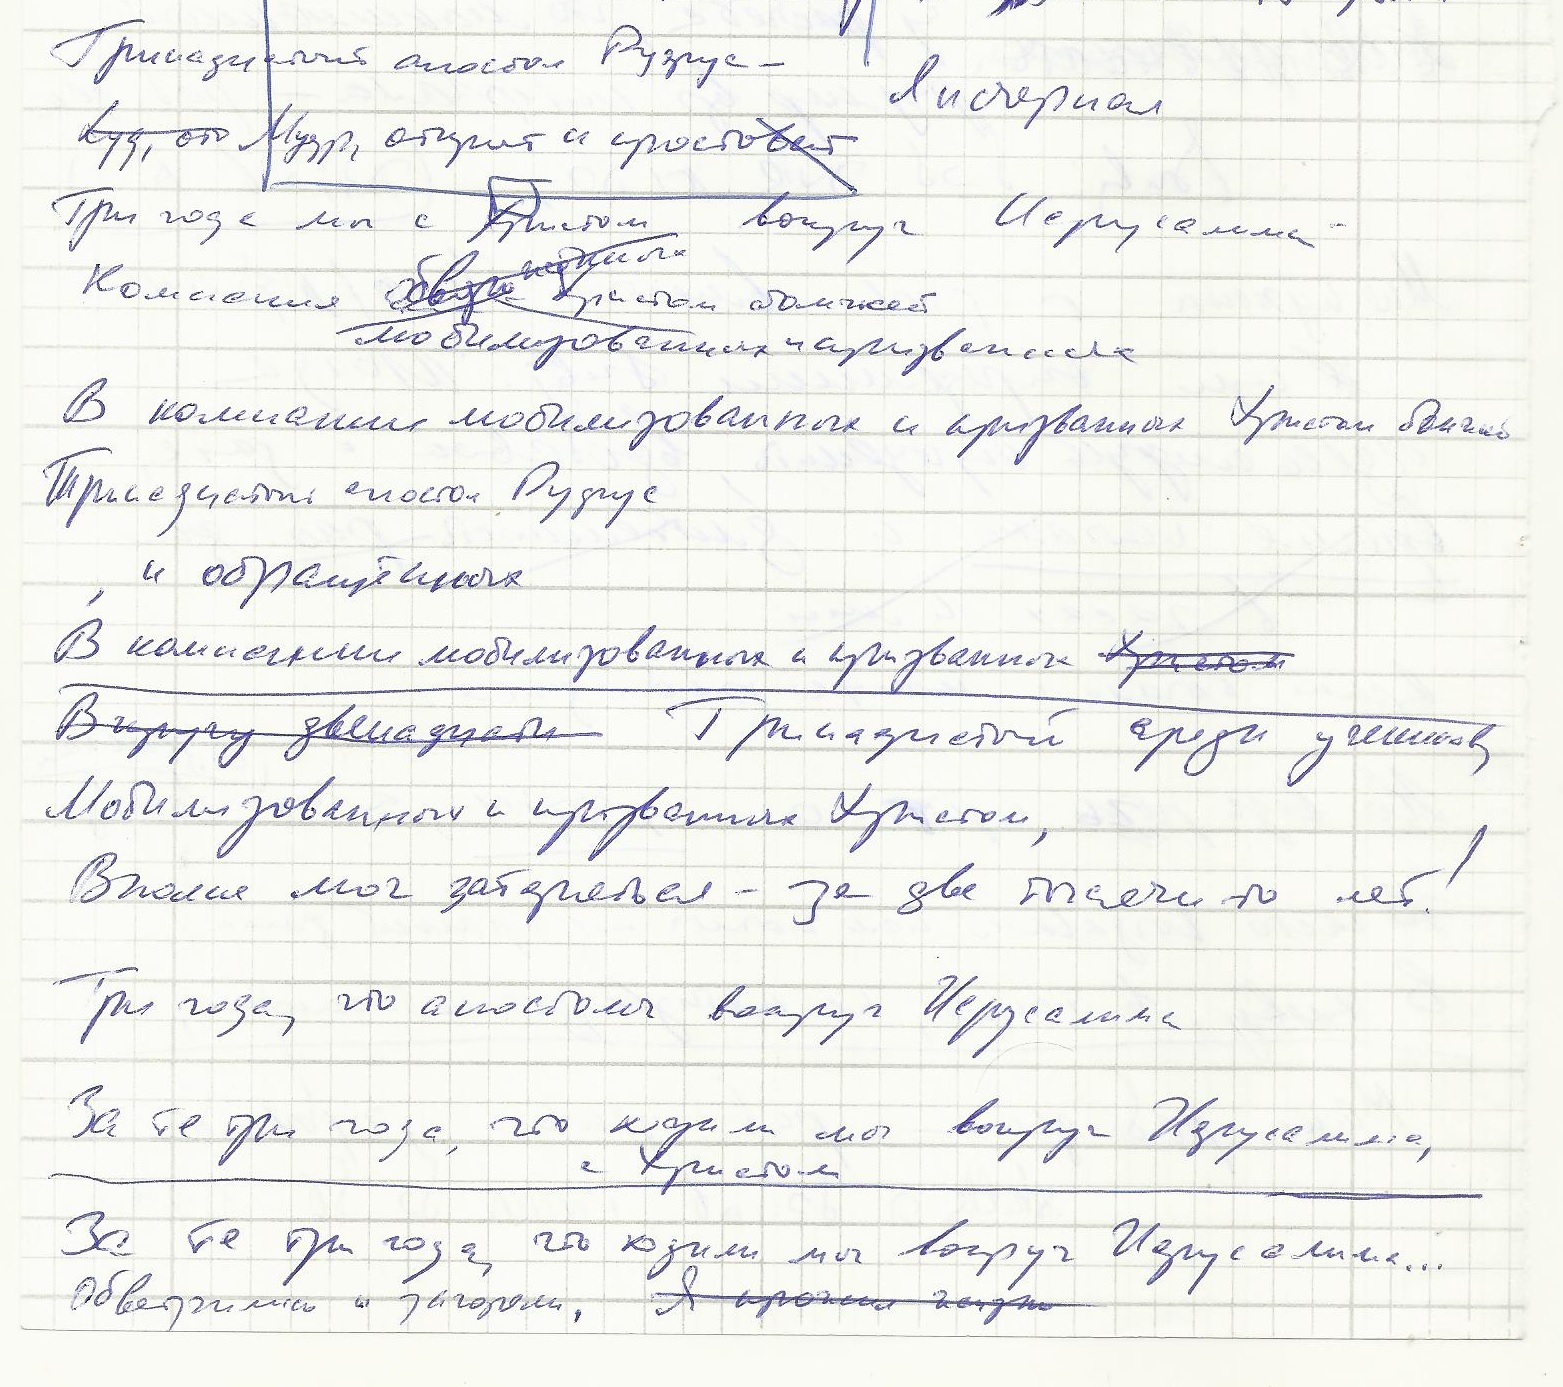 Тринадцатый апостол Рудрус –
Я исчерпал
Куд, это Мудр, открыт и простоват
Три года мы с Христом вокруг Иерусалима
Компания Христом
мобилизованных и призванных
В компании мобилизованных и призванных Христом
Тринадцатый апостол Рудрус
, и обращённых
В компании мобилизованных и призванных Христом
В кругу двенадцати Тринадцатый среди учеников,
Мобилизованных и призванных Христом,
Вполне мог затеряться – за две тысячи то лет!
Три года, что апостолы вокруг Иерусалима
За те три года, что ходили мы вокруг Иерусалима,
с Христом
За те три года, что ходили мы вокруг Иерусалима...
Обветрились и загорели. Я прожил жизнь